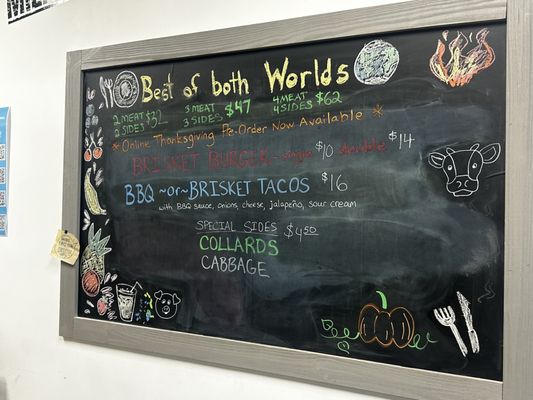 Best of both Worlds
2 MEAT $32 3 MEAT $47 4 MEAT $62
2 SIDES 3 SIDES 4 SIDES
* Online Thanksgiving Pre-Order Now Available *
BRISKET BURGER - single $10 double $14
BBQ ~or~ BRISKET TACOS $16
with BBQ sauce, onions, cheese, jalapeño, sour cream
SPECIAL SIDES $4.50
COLLARDS
CABBAGE